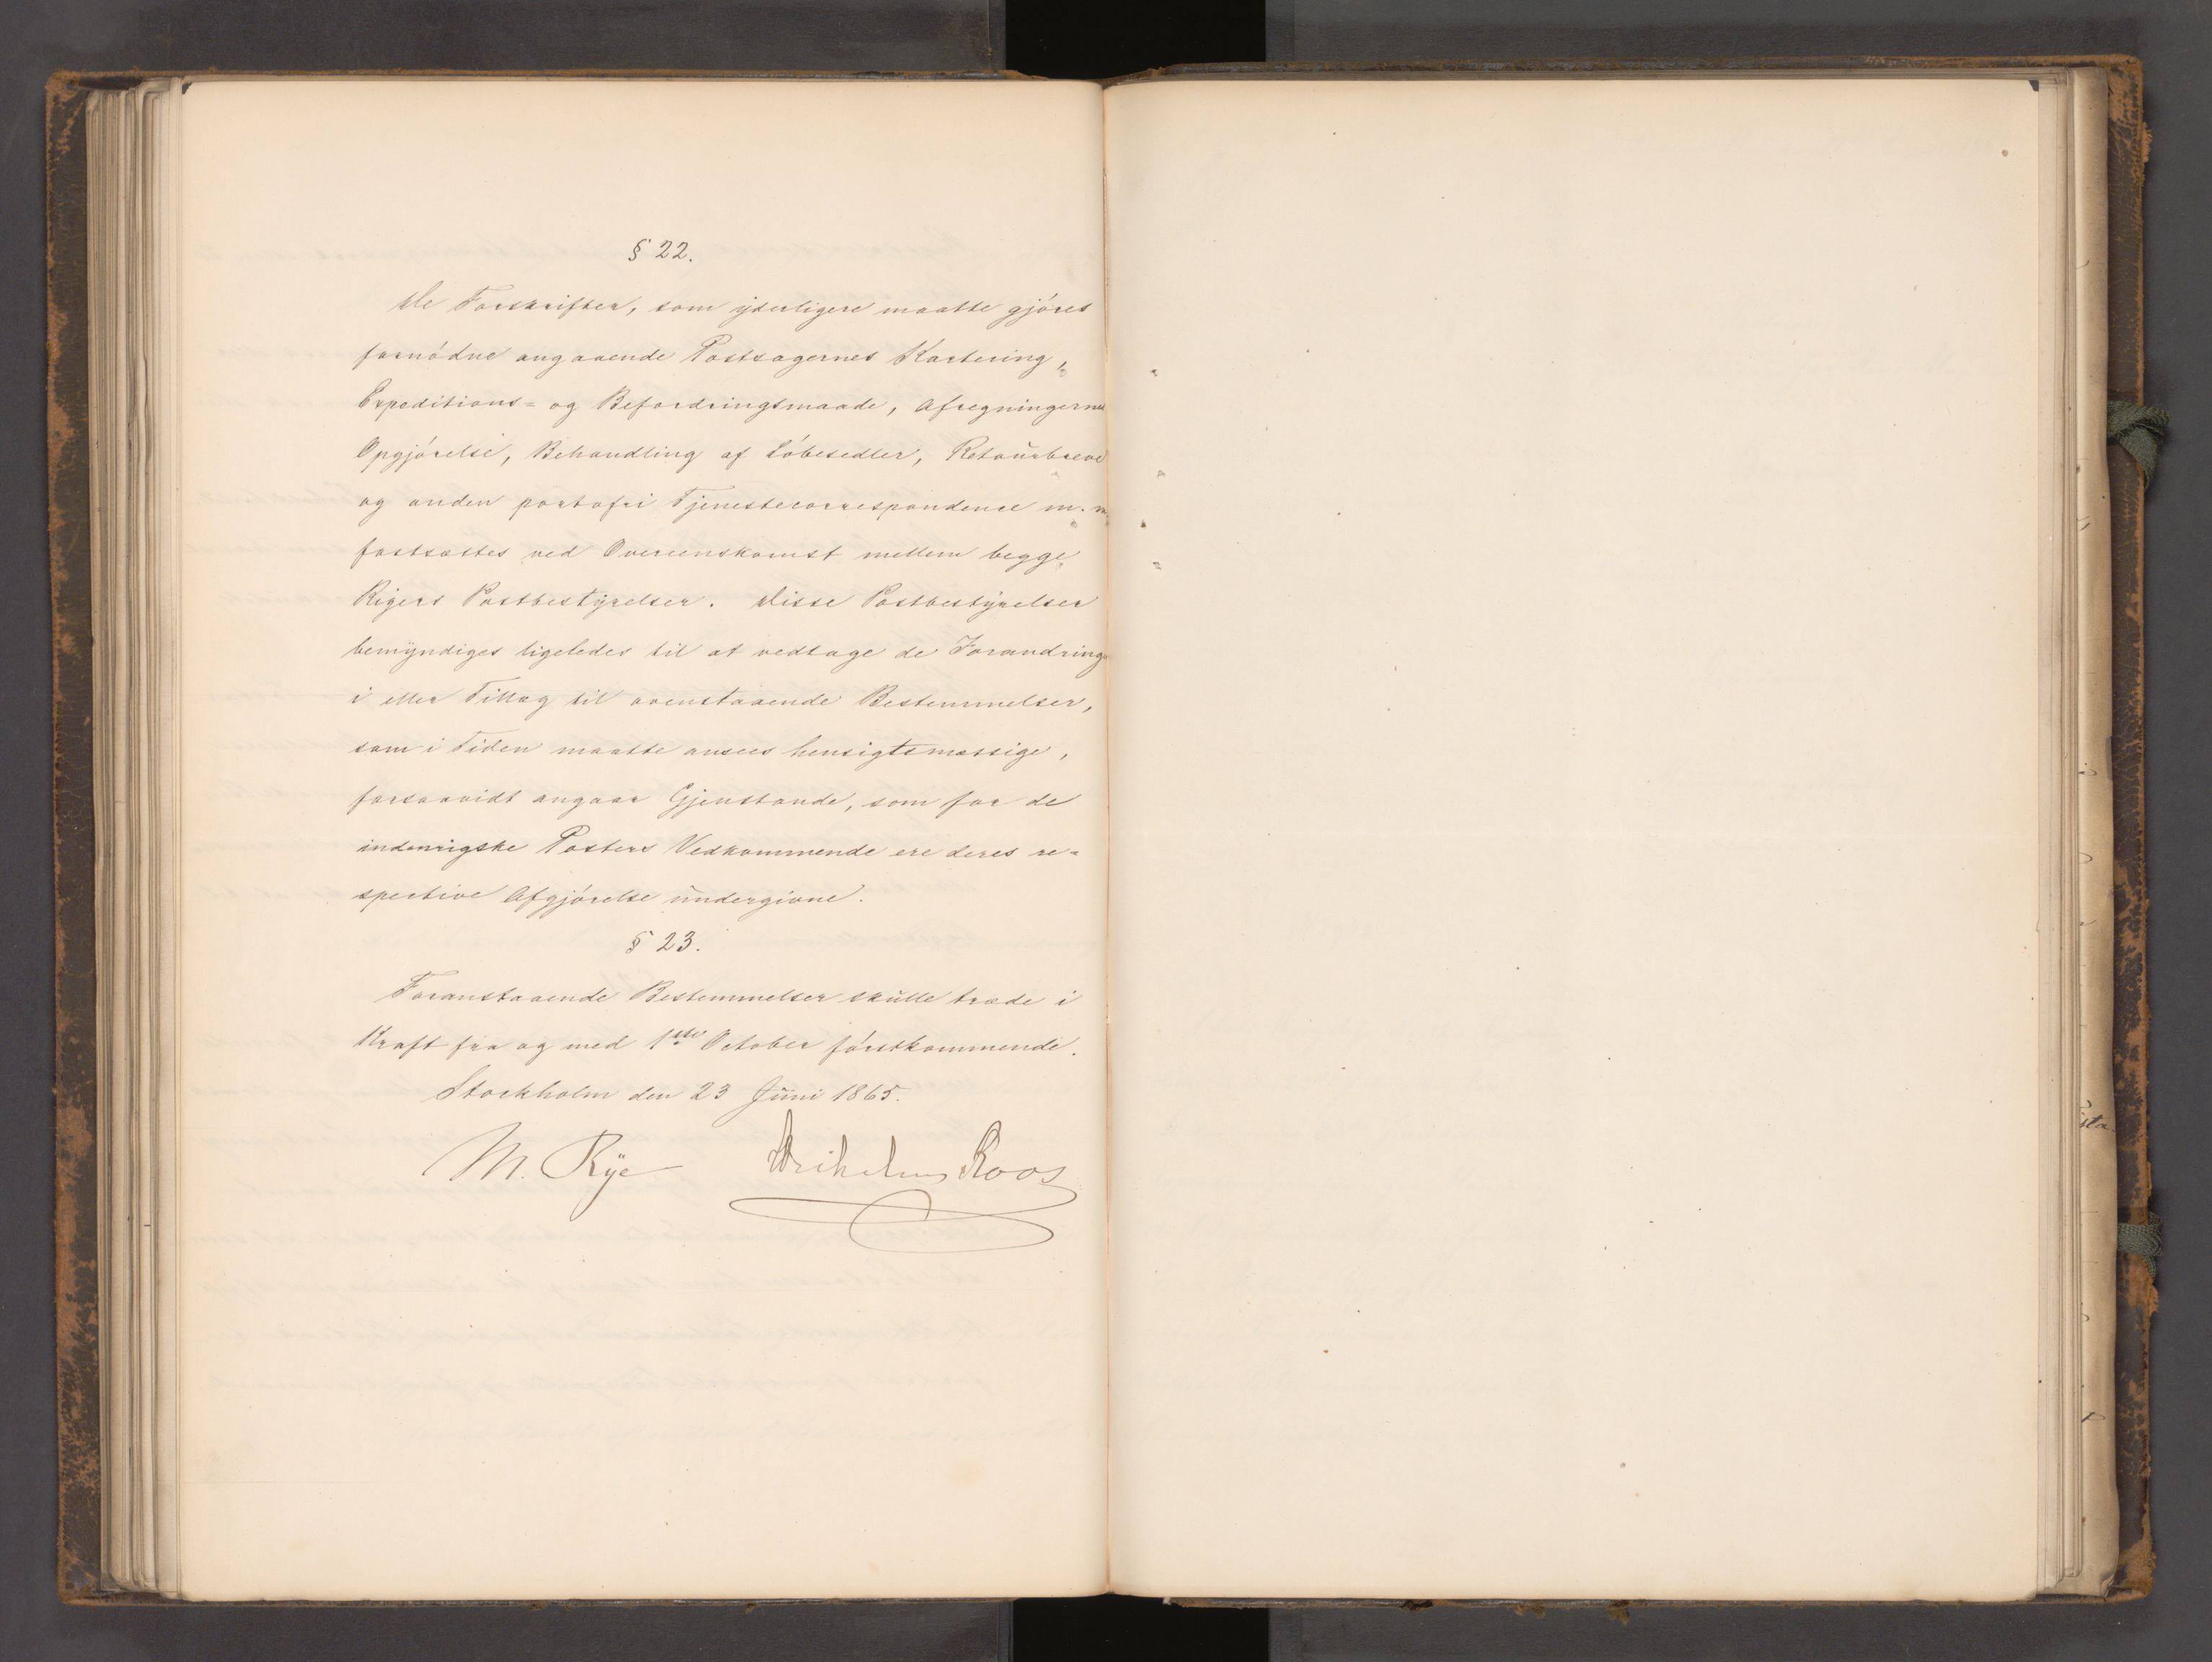 § 22.
De Forskrifter, som yderligere maatte gjöres
fornödne angaaende Postsagernes Kartering,
Expeditions= og Befordringsmaade, Afregningernes
Opgjörelse, Behandling af Löbesedler, Retourbreve
og anden portofri Tjenestecorrespondence m. m.
fastsættes ved Overeenskomst mellem begge
Rigers Postbestyrelser. Disse Postbestyrelser
bemyndiges ligeledes til at vedtage de Forandringer
i eller Tillæg til ovenstaaende Bestemmelser,
som i Tiden maatte ansees hensigtsmæssige,
forsaavidt angaar Gjenstande, som for de
indenrigske Posters Vedkommende ere deres re=
spective Afgjörelse undergivne.
§ 23.
Foranstaaende Bestemmelser skulle træde i
Kraft fra og med 1ste October förstkommende.
Stockholm den 23 Juni 1865.
M. Rye Wilhelm Roos